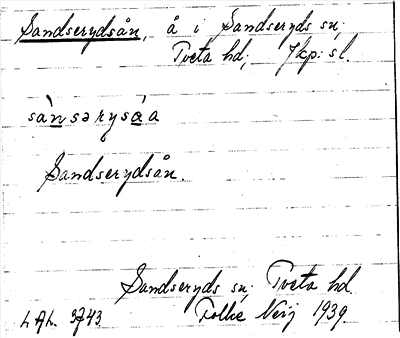 Sandserydsån, å i Sandseryds sn;
Tveta hd; Jkp: sl.
sànsərysåa
Sandserydsån.
Sandseryds sn; Tveta hd
L.Ah. 3743 Folke Neij 1939